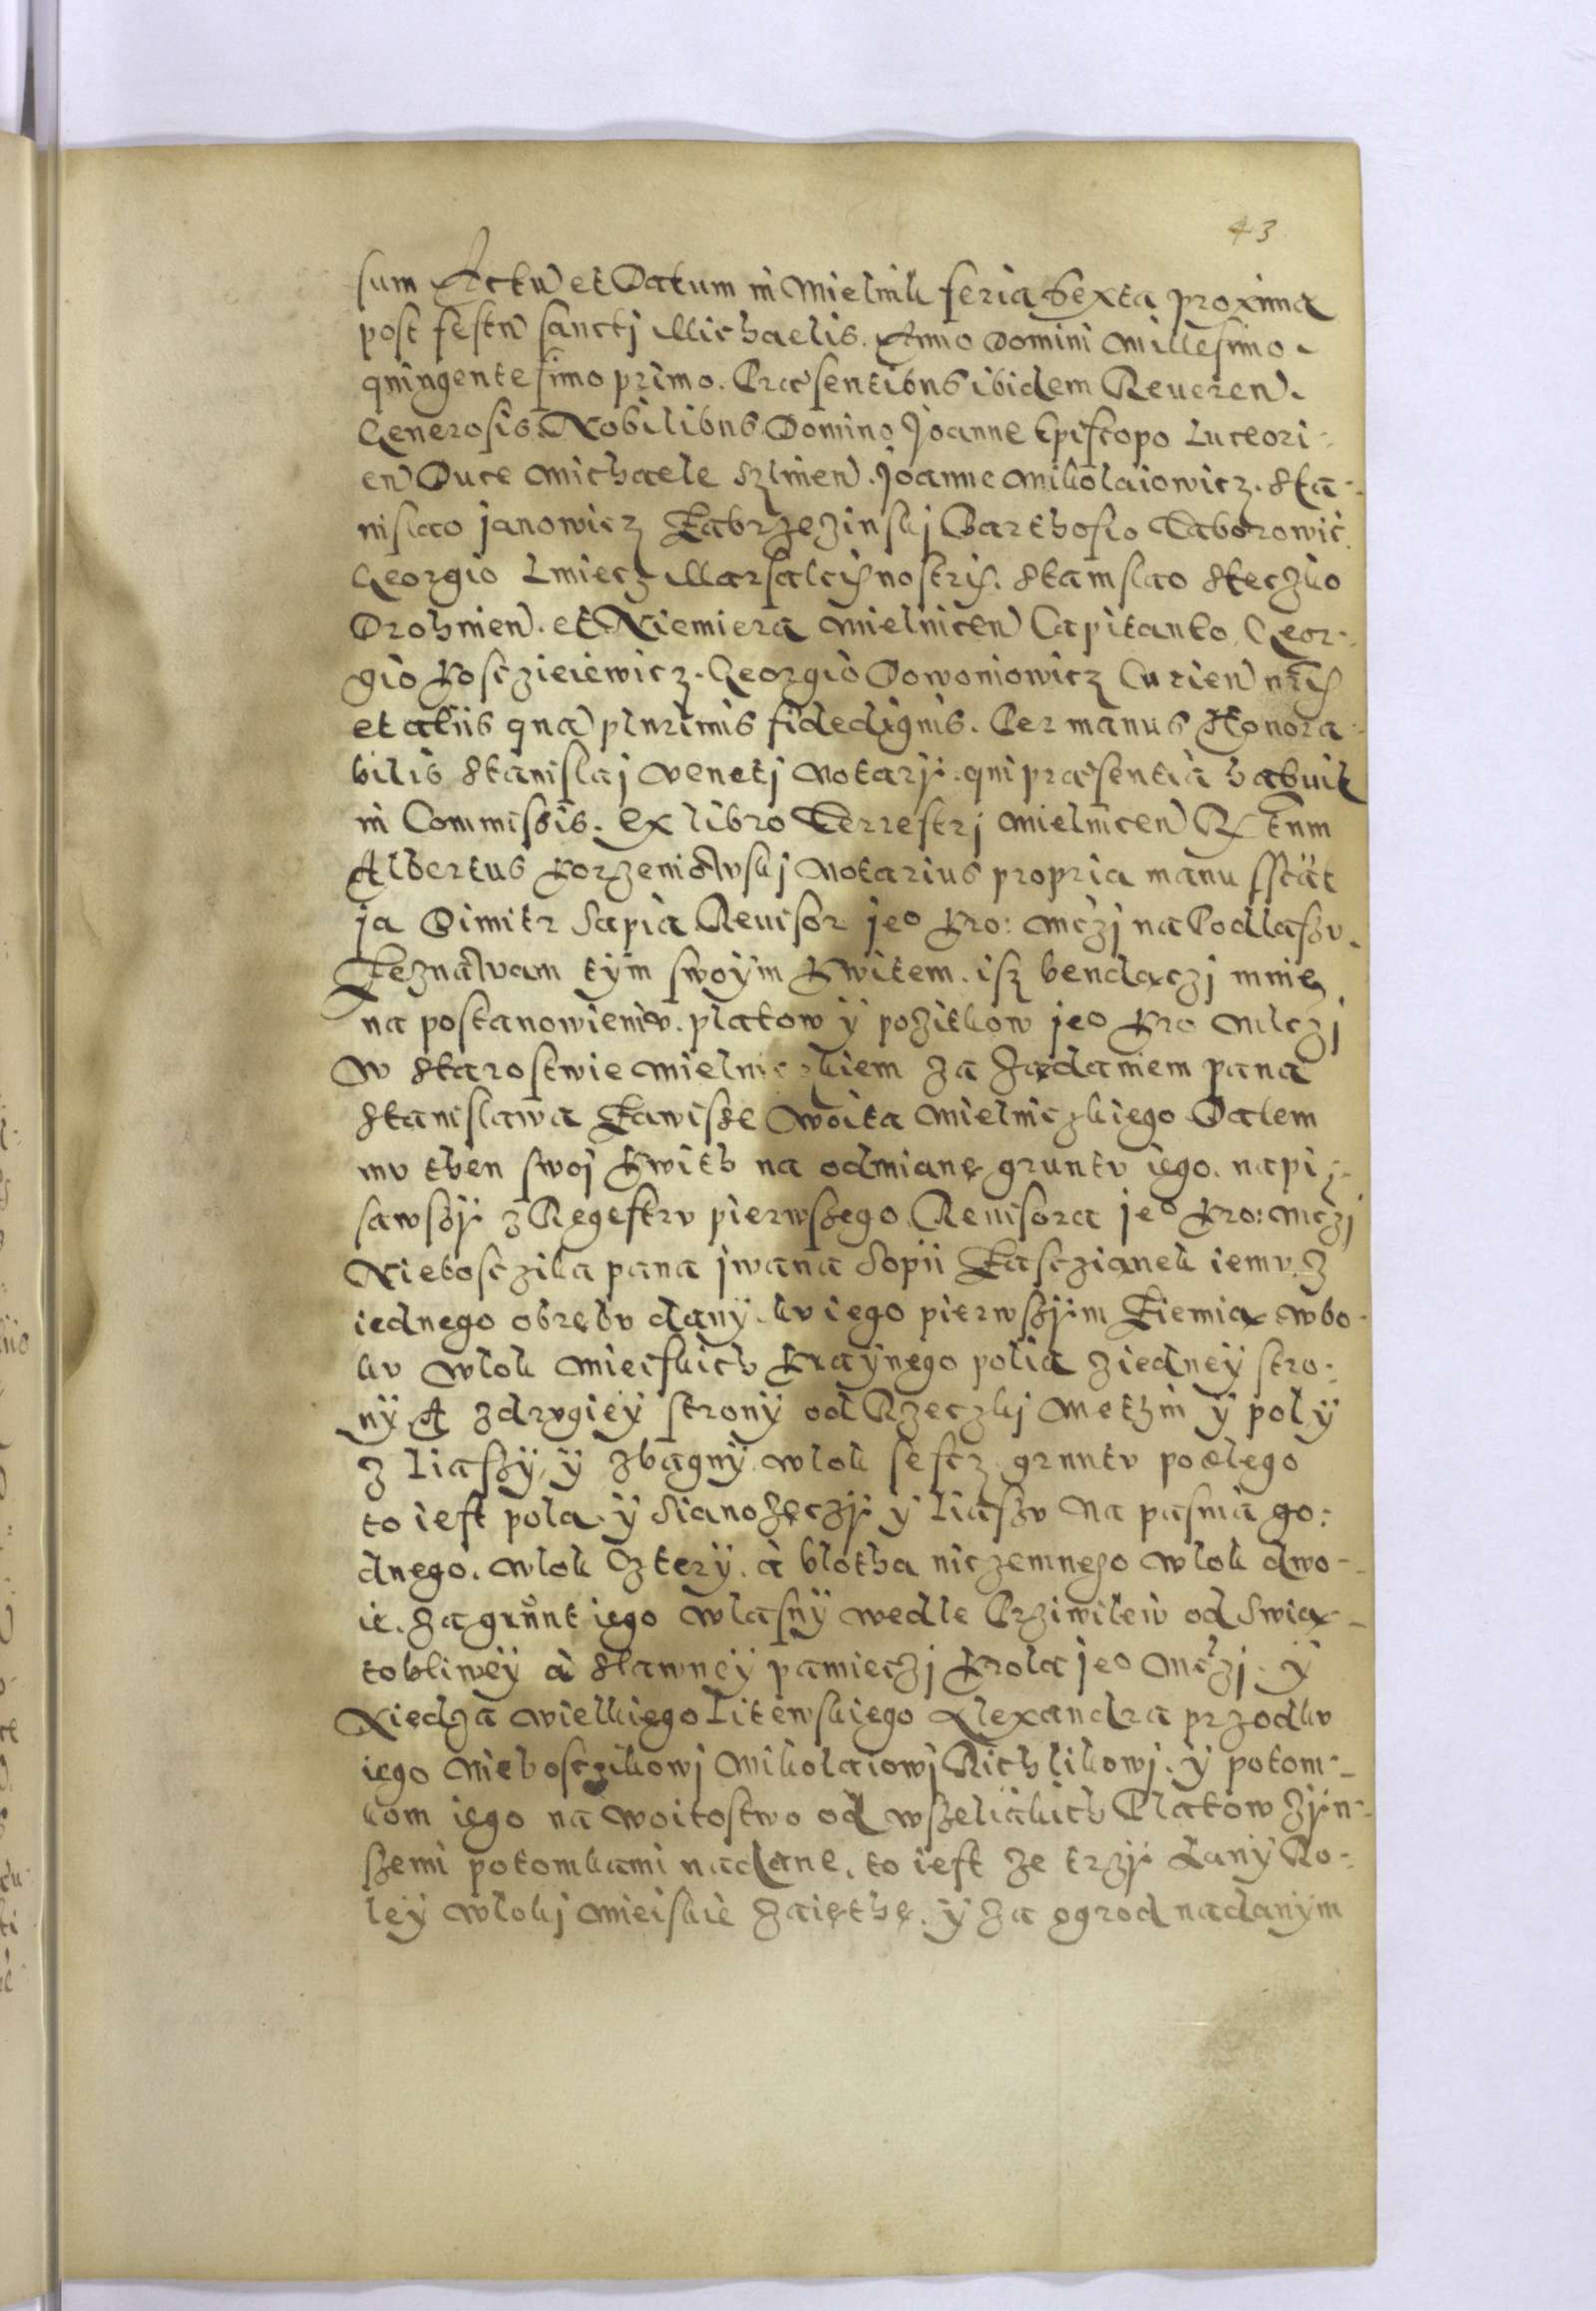 43
sum Actu et Datum in Mielnik feria Sexta proxima
post festu sancti Michaelis. Anno Domini Millesimo
quingentesimo primo. Præsentibus ibidem Reueren.
Generosis Nobilibus Domino Joanne Episcopo Luceori-
en Duce Michaele Joanne Mikolaiowicz. Sta-
nislao Janowicz Zabrzezinskj Barthosio Taborowic
Georgio Marsalcis nostris. Stanislao Steczko
Drohinen. et Niemiera Mielnicen Capitanto. Geor-
gio Kosczieiewicz. Georgio Dowoniowicz Curien nris
et aliis qua plurimis fidedignis. Per manus Honora-
bilis Stanislaj Venetj Notarij. qui præsentia habuit
in Commissis. Ex libro Terrestrj Mielnicen Rtum
Albertus Korzeniowskj Notarius propria manu sst
ja Dimitr Sapia Reuisor jeo Kro: Mczj na Podlaszv.
Zeznawam tÿm swoÿm Kwitem. isz bendączj mnie
na postanowieniv. platow ÿ pozitkow jeo Kro Mlczj
w Starostwie Mielniczkiem za Ządaniem pana
Stanislawa Zawiske Woita Mielniczkiego Dalem
mv then swoj Kwith na odmianę gruntv iego. napi-
sawszÿ z Regestrv pierwszego Reuisora jeo Kro: Mczj
Nieboscziка pana jwana Sopii Zascziąnek iemv. z
iednego obrębv danÿ. kv iego pierwszÿm Ziemią w bo-
kv wlok Mieiskich Kraÿnego polia z iedneÿ stro-
nÿ. A z drvgieÿ stronÿ od Rzeczkj Methni ÿ polÿ
z Liaszÿ, ÿ z bagnÿ. wlok sescz. gruntv podlego
to iest pola. ÿ Sianozęczÿ ÿ Liaszv na pasmia go-
dnego. wlok Czterÿ. à blotha niczemnego wlok dwo-
ie. za grunt iego wlasnÿ wedle Prziwileiv od Swią-
tobliweÿ à Slawneÿ pamieczj Krola jeo Mczj. ÿ
Xiedza wielkiego Litewskiego Alexandra przodkv
iego Nieboszczikowj Mikolaiowj Richlikowj. ÿ potom-
kom iego na Woitostwo od wszeliakich Platow zÿn-
szemi potomkami nadane. to iest ze trzÿ Lanÿ Ro-
leÿ wlokj Mieiskie zaięthe. ÿ za ogrod nadanÿm